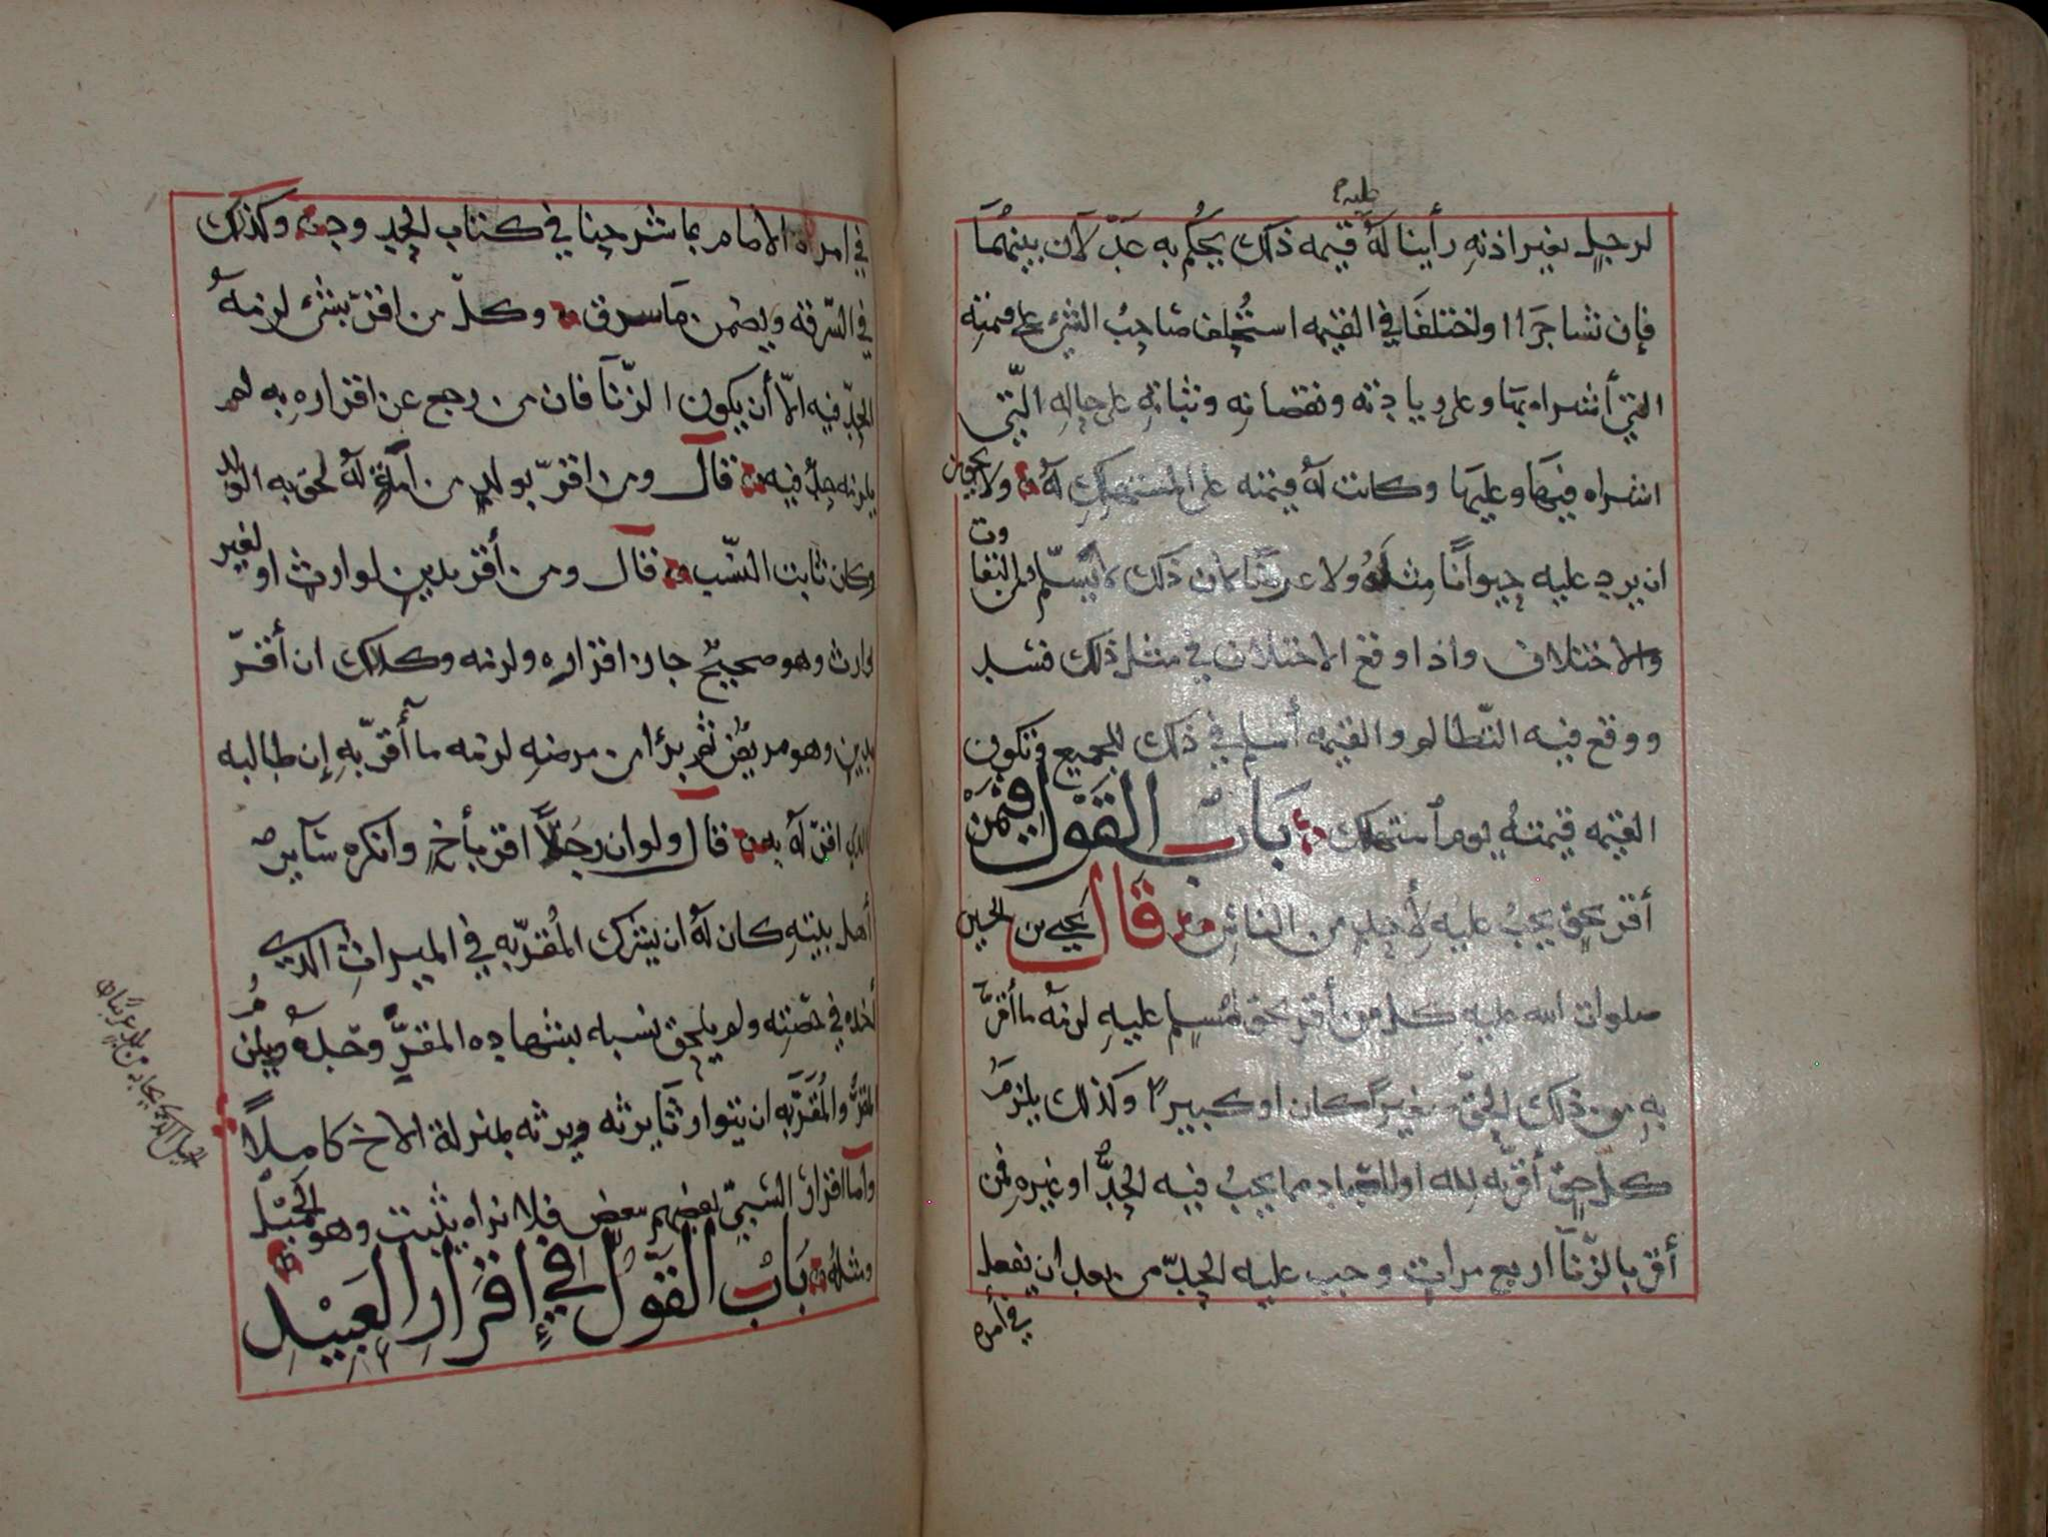 عليه
لرجل بغير اذنه رأينا لَهُ قيمه ذلك يحكم به عدلان بينهما
فإن تشاجرا او اختلفا في القيمه استُحلف صاحب الشئ على قيمته
التي أشتراه بها وعلى زيادته ونقصانه وثباته على حاله الّتي
اشتراه فيها وعليها وكانت له قيمته على المستهلك له ولا يحق من
ان يرد عليه حيواناً مثله ولا عرضا لأن ذلك لا يسلم من التفاوت
والاختلاف واذا وقع الاختلاف في مثل ذلك فسد
ووقع فيه التّظالم والقيمه أسلم في ذلك للجميع وتكون
القيمه قيمته يوم استهلك بَابُ القَوْل فِيْمَنْ
أقر بحق يجب عليه لأحد من الناس قَالَ يحيى بن الحسين
صلوات الله عليه كل من أقر بحق لمسلم عليه لزمه ما أقرَّ
به من ذلك الحق صغيراً كان او كبيراً وكذلك يلزمُ
كلّ حق أقرّ به لله او للعباد مما يجبُ فيه الحدُّ او غيره فمن
أقر بالزّنا اربع مرات وجب عليه الحدّ من بعد ان يفعل
في أمره
في امره الامام بما شرحنا في كتاب الحد وكذلك
في السّرقه ويضمن ما سرق وكلّ من اقرّ بشئ لزمهُ
الحدّ فيه الّا أن يكون الزّنا فان من رجع عن اقراره به لم
يلزمه حدٌ فيه قال ومن اقرّ بولد من أمةٍ لهُ لحق به الولد
وكان ثابت النسّب قال ومن أقر بدين لوارث او لغير
وارث وهو صحيح جاز اقراره ولزمه وكذلك ان أقرّ
بدين وهو مريض ثم برئ من مرضه لزمه ما أقرّ به إن طالبه
الذي اقرّ له به قال ولو ان رجلاً اقر بأخ وانكره سآير
أهل بيته كان لهُ ان يشرك المُقرّ به في الميراث الذي
أخذه في حصّته ولم يلحق نسبه بشهاده المقرِّ وحده ويلزمُ
المقرُّ والمُقَرَّ به ان يتوارثا يرثه ويرثه بمنزلة الاخ كاملاً
وأما اقرار السبيّ بعضهم ببعض فلا نراه يثبت وهو الحَمِيْل
ومثله بَابُ القَوْل في إقرار العَبِيْدِ